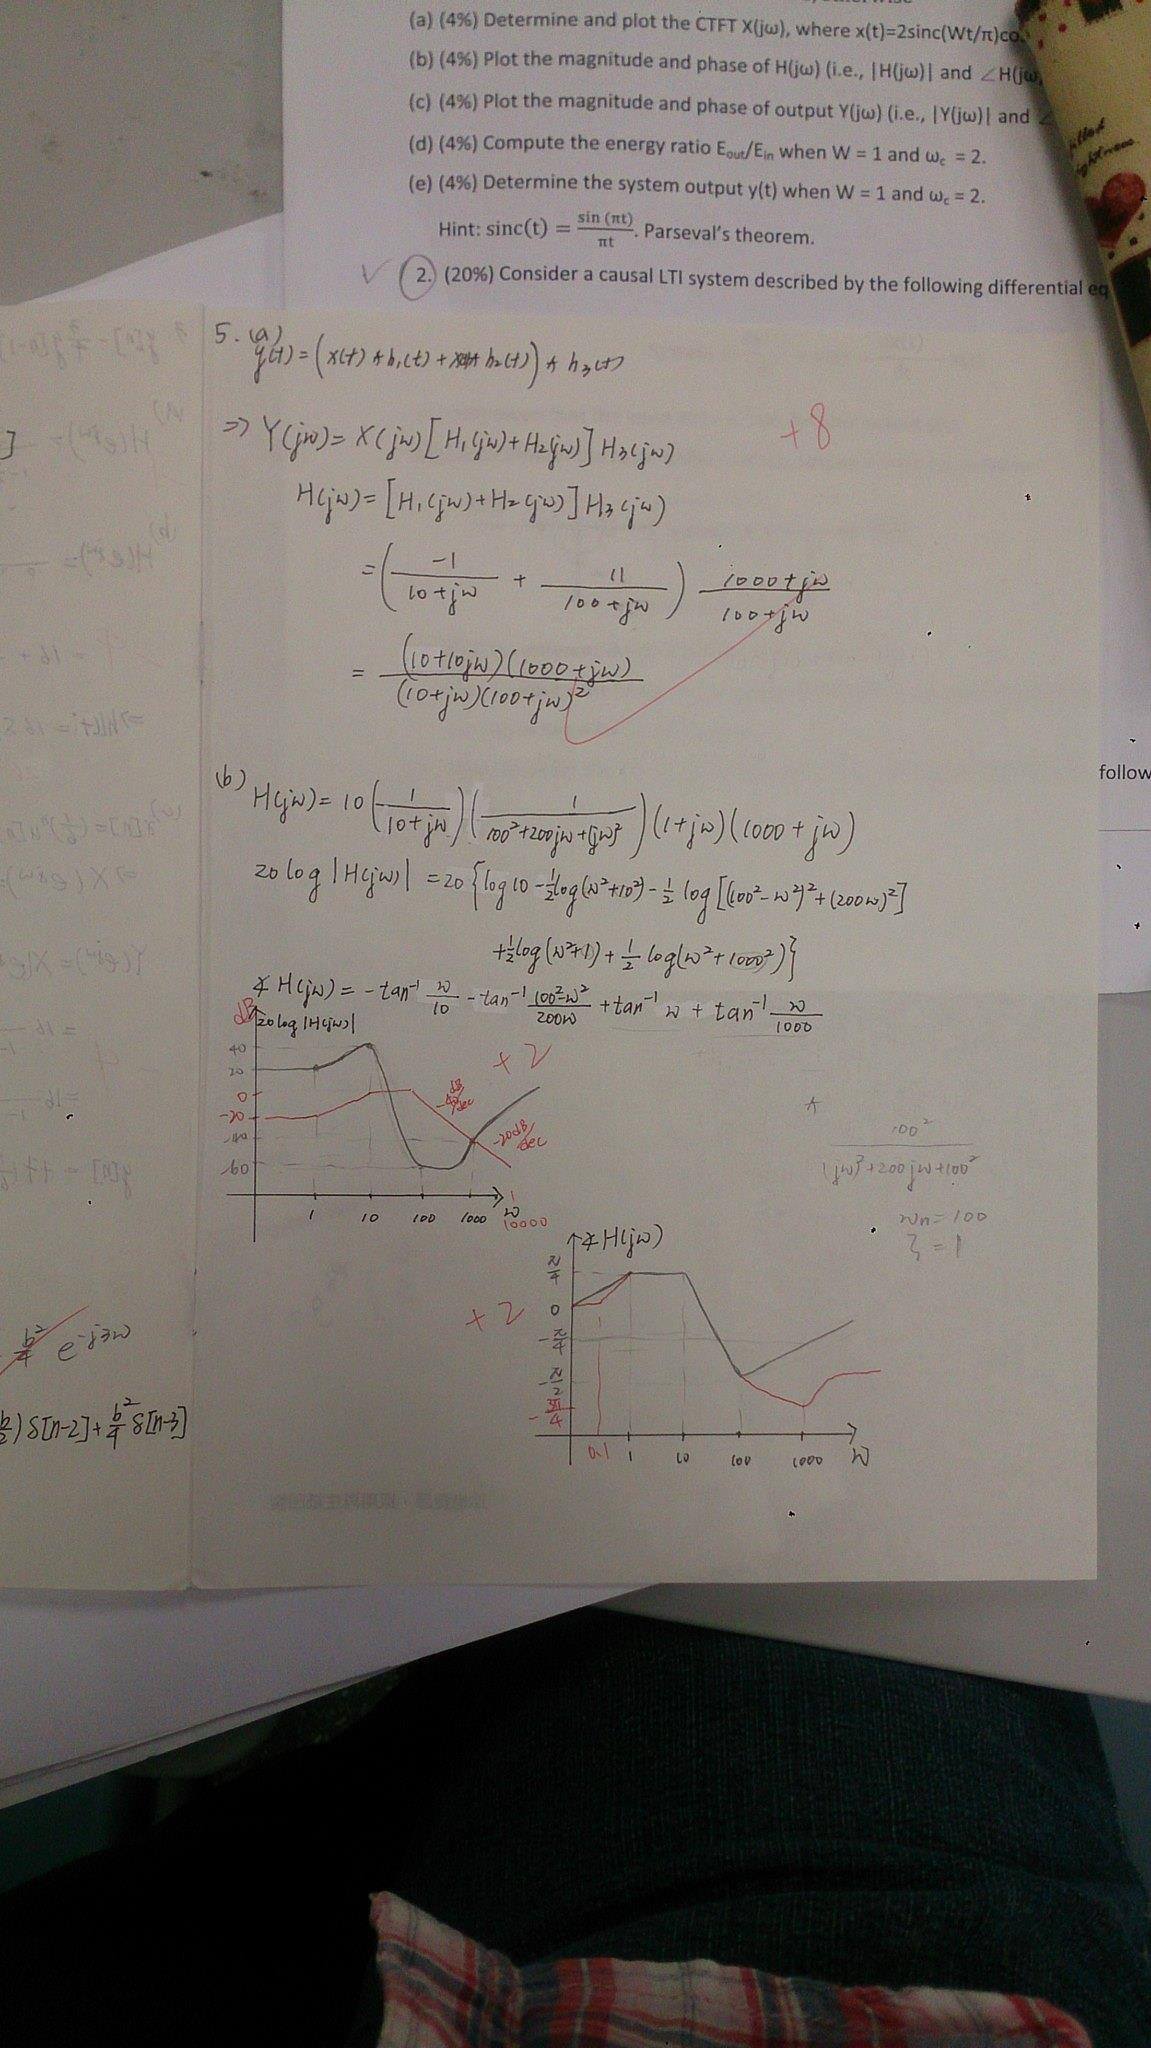 (a) (4%) Determine and plot the CTFT X(jω), where x(t)=2sinc(Wt/π)co
(b) (4%) Plot the magnitude and phase of H(jω) (i.e., |H(jω)| and ∠H(jω
(c) (4%) Plot the magnitude and phase of output Y(jω) (i.e., |Y(jω)| and ∠
(d) (4%) Compute the energy ratio E_out/E_in when W = 1 and ω_c = 2.
(e) (4%) Determine the system output y(t) when W = 1 and ω_c = 2.
Hint: sinc(t) = sin (πt)/πt. Parseval's theorem.
2. (20%) Consider a causal LTI system described by the following differential eq
5. (a)
y(t) = (x(t) * h₁(t) + x(t) * h₂(t)) * h₃(t)
⇒ Y(jω) = X(jω) [H₁(jω)+H₂(jω)] H₃(jω)
+8
H(jω) = [H₁(jω)+H₂(jω)] H₃(jω)
= (-1/(10+jω) + 11/(100+jω)) (1000+jω)/(100+jω)
= (10+10jω)(1000+jω)/((10+jω)(100+jω)²)
follow
(b) H(jω) = 10 (1/(10+jω)) (1/(100²+200jω+(jω)²)) (1+jω)(1000+jω)
20 log |H(jω)| = 20 {log10 - ½log(ω²+10²) - ½ log[(100²-ω²)²+(200ω)²]
+½log(ω²+1) + ½ log(ω²+1000²)}
∡ H(jω) = -tan⁻¹ ω/10 - tan⁻¹ (100²-ω²)/200ω + tan⁻¹ ω + tan⁻¹ ω/1000
dB
20 log |H(jω)|
40
20
0
-20
-40
-60
+2
-40 dB/dec
-20dB/dec
1 10 100 1000 ω
10000
100²/((jω)²+200jω+100²)
ωn = 100
ζ = 1
∡H(jω)
+2
π/4
0
-π/4
-π/2
-3π/4
0.1 1 10 100 1000 ω
b²/4 e^-j3ω
δ[n-2]+b²/4 δ[n-3]